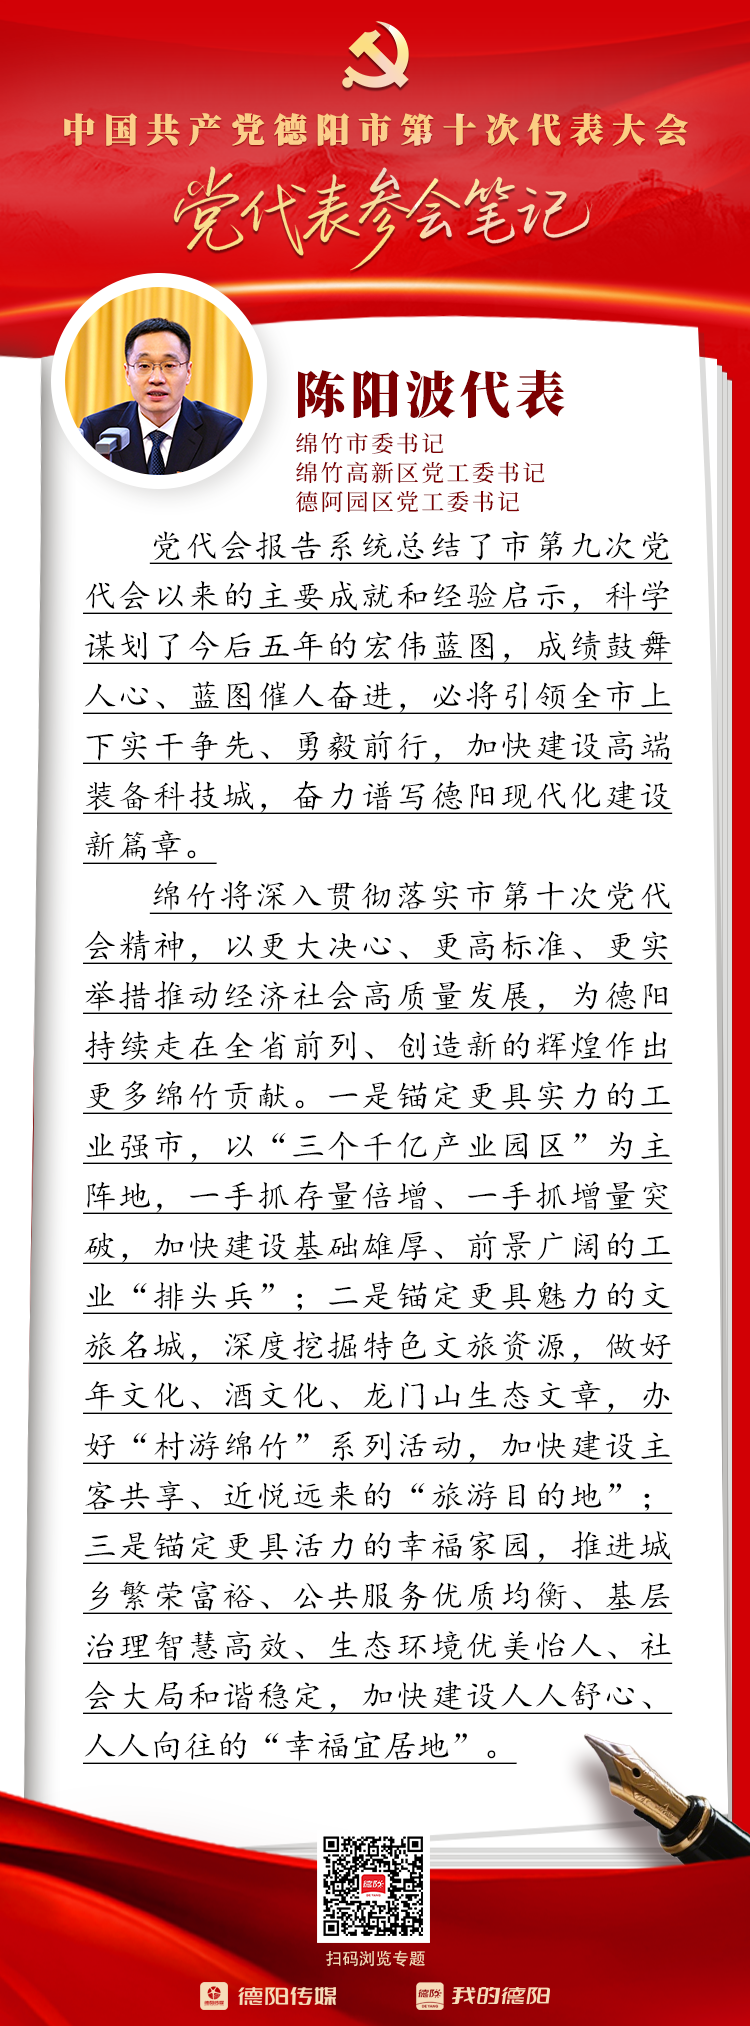 中国共产党德阳市第十次代表大会
党代表参会笔记
陈阳波代表
绵竹市委书记
绵竹高新区党工委书记
德阿园区党工委书记
党代会报告系统总结了市第九次党
代会以来的主要成就和经验启示，科学
谋划了今后五年的宏伟蓝图，成绩鼓舞
人心、蓝图催人奋进，必将引领全市上
下实干争先、勇毅前行，加快建设高端
装备科技城，奋力谱写德阳现代化建设
新篇章。
绵竹将深入贯彻落实市第十次党代
会精神，以更大决心、更高标准、更实
举措推动经济社会高质量发展，为德阳
持续走在全省前列、创造新的辉煌作出
更多绵竹贡献。一是锚定更具实力的工
业强市，以“三个千亿产业园区”为主
阵地，一手抓存量倍增、一手抓增量突
破，加快建设基础雄厚、前景广阔的工
业“排头兵”；二是锚定更具魅力的文
旅名城，深度挖掘特色文旅资源，做好
年文化、酒文化、龙门山生态文章，办
好“村游绵竹”系列活动，加快建设主
客共享、近悦远来的“旅游目的地”；
三是锚定更具活力的幸福家园，推进城
乡繁荣富裕、公共服务优质均衡、基层
治理智慧高效、生态环境优美怡人、社
会大局和谐稳定，加快建设人人舒心、
人人向往的“幸福宜居地”。
扫码浏览专题
德阳传媒
我的德阳